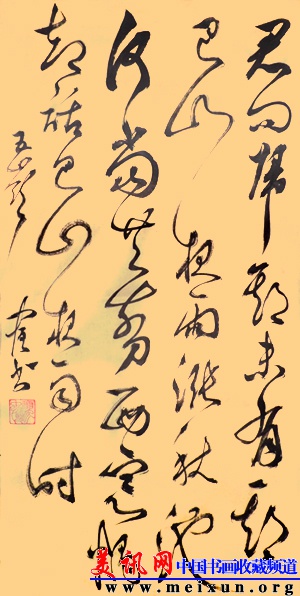 君問歸期未有期
巴山夜雨漲秋池
何當共剪西窗燭
却話巴山夜雨時
美讯网 中国书画收藏频道
www.meixun.org